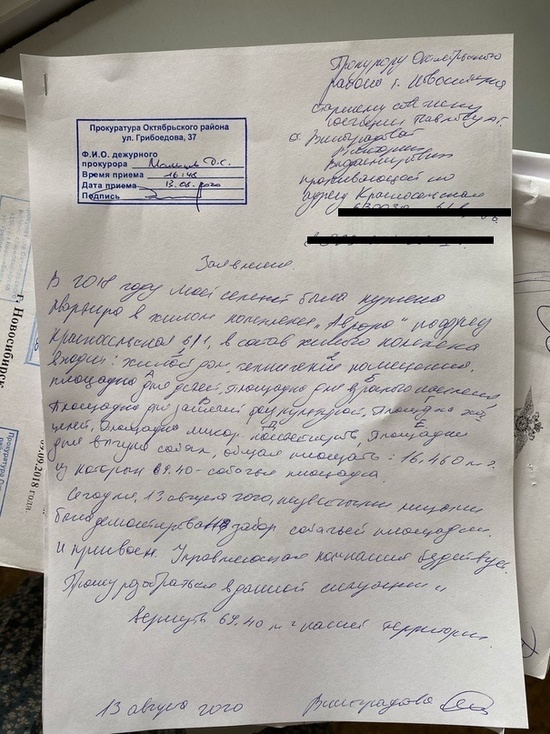 Прокурору Октябрьского
района г. Новосибирска
старшему советнику
юстиции Павлову А.Г.
от Виноградовой
Виктории
Владимировны
проживающей по
адресу Красносельская
Прокуратура Октябрьского района
ул. Грибоедова, 37
Ф.И.О. дежурного
прокурора Д.С.
Время приема 16:48
Дата приема 13.08.2020
Подпись
Заявление
В 2018 году моей семьей была куплена
квартира в жилом комплексе „Аврора" по адресу
Красносельская 61/1, в состав жилого комплекса
входил: жилой дом, технические помещения,
площадка для детей, площадка для взрослого населения
Площадка для занятий физкультурой, площадка хоз.
целей, площадка мусор. контейнеров, площадка
для выгула собак, общая площадь: 16.460 м²
из которых 69.40 - собачья площадка.
Сегодня, 13 августа 2020, неизвестными лицами
был демонтирован забор собачьей площадки
и присвоен. Управляющая компания бездействует
Прошу разобраться в данной ситуации и
вернуть 69.40 м² нашей территории.
13 августа 2020 Виноградова
г. Новосибирск
09.2018 года